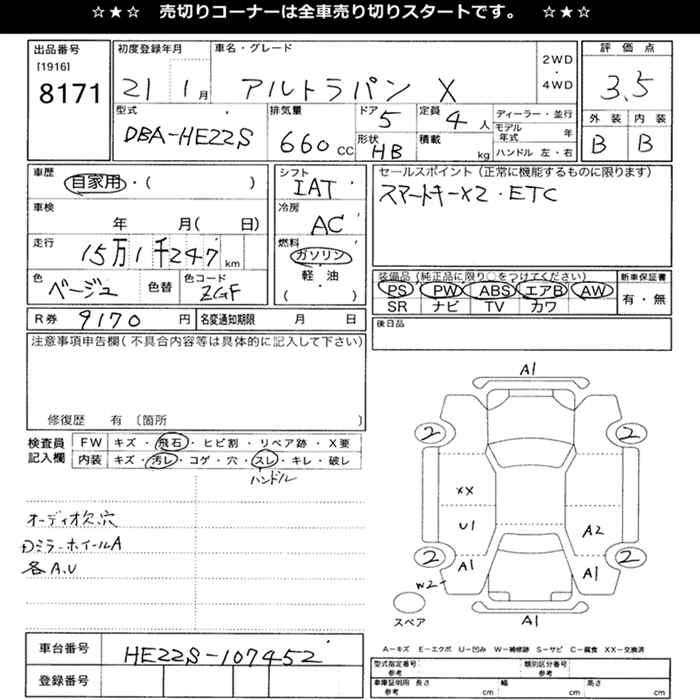 ☆★☆ 売切りコーナーは全車売り切りスタートです。 ☆★☆
出品番号
[1916]
8171
初度登録年月
21 1月
車名・グレード
アルトラパン X
2WD
・
4WD
評価点
3.5
外装 内装
B B
型式
DBA-HE22S
排気量
660 CC
ドア 5
形状 HB
定員 4人
積載 kg
ディーラー・並行
モデル年式 年
ハンドル 左・右
車歴
自家用・( )
車検
年 月( 日)
走行
15万1千247km
色
ベージュ
色替
色コード
ZGF
シフト
IAT
冷房
AC
燃料
ガソリン
軽・油
( )
セールスポイント(正常に機能するものに限ります)
スマートキーX2・ETC
装備品(純正品に限り○をつけてください)
PS PW ABS エアB AW
SR ナビ TV カワ
新車保証書
有・無
R券 9170円
名変通知期限 月 日
後日品
注意事項申告欄(不具合内容等は具体的に記入して下さい)
修復歴 有〔箇所 〕
検査員
記入欄
FW キズ・飛石・ヒビ割・リペア跡・X要
内装 キズ・汚レ・コゲ・穴・スレ・キレ・破レ
ハンドル
オーディオ欠穴
Dミラーホイール A
各A.U
A1
2 2
XX
U1 A2
A1 A1
2 2
W2
A1
スペア
A-キズ E-エクボ U-凹み W-補修跡 S-サビ C-腐食 XX-交換済
車台番号
HE22S-107452
登録番号
型式指定番号
参考
類別区分番号
参考
車庫証明用 長さ
参考 cm
幅
cm
高さ
cm